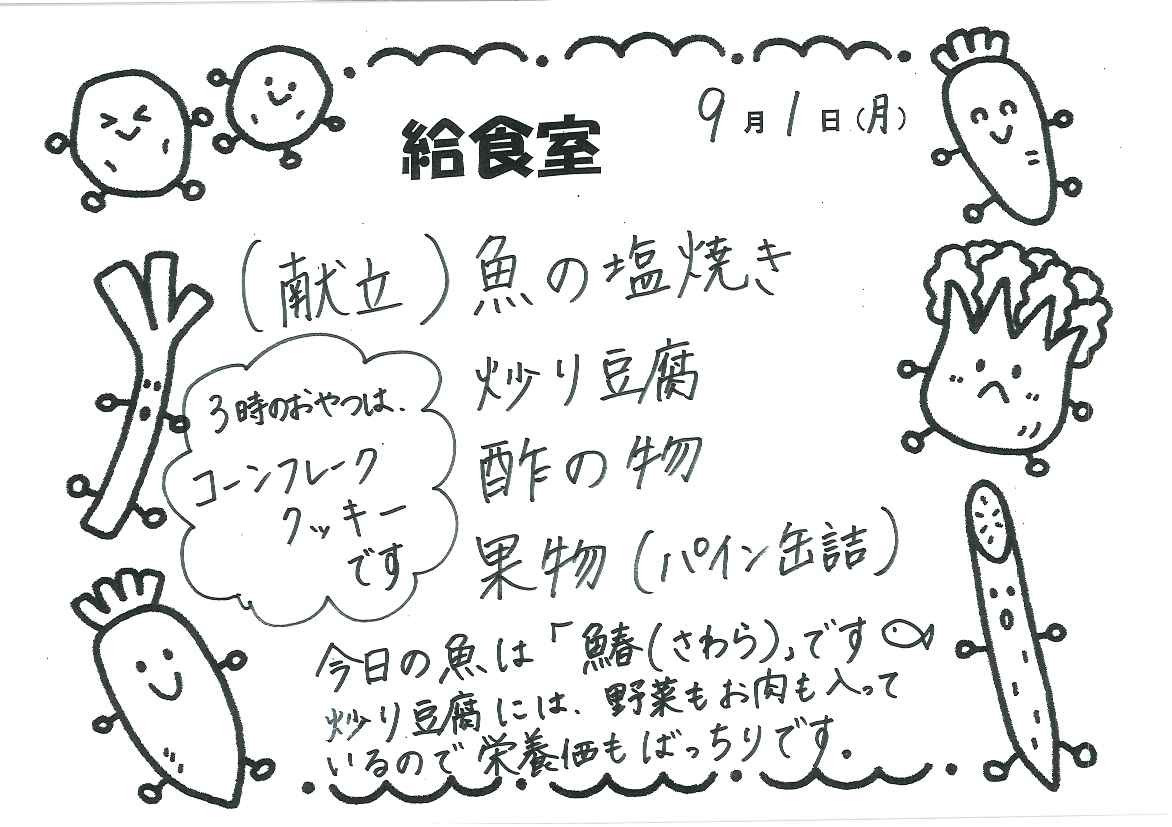 給食室
9月1日(月)
(献立)魚の塩焼き
炒り豆腐
酢の物
果物(パイン缶詰)
3時のおやつは、
コーンフレーク
クッキー
です
今日の魚は「鰆(さわら)」です
炒り豆腐には、野菜もお肉も入って
いるので栄養価もばっちりです。